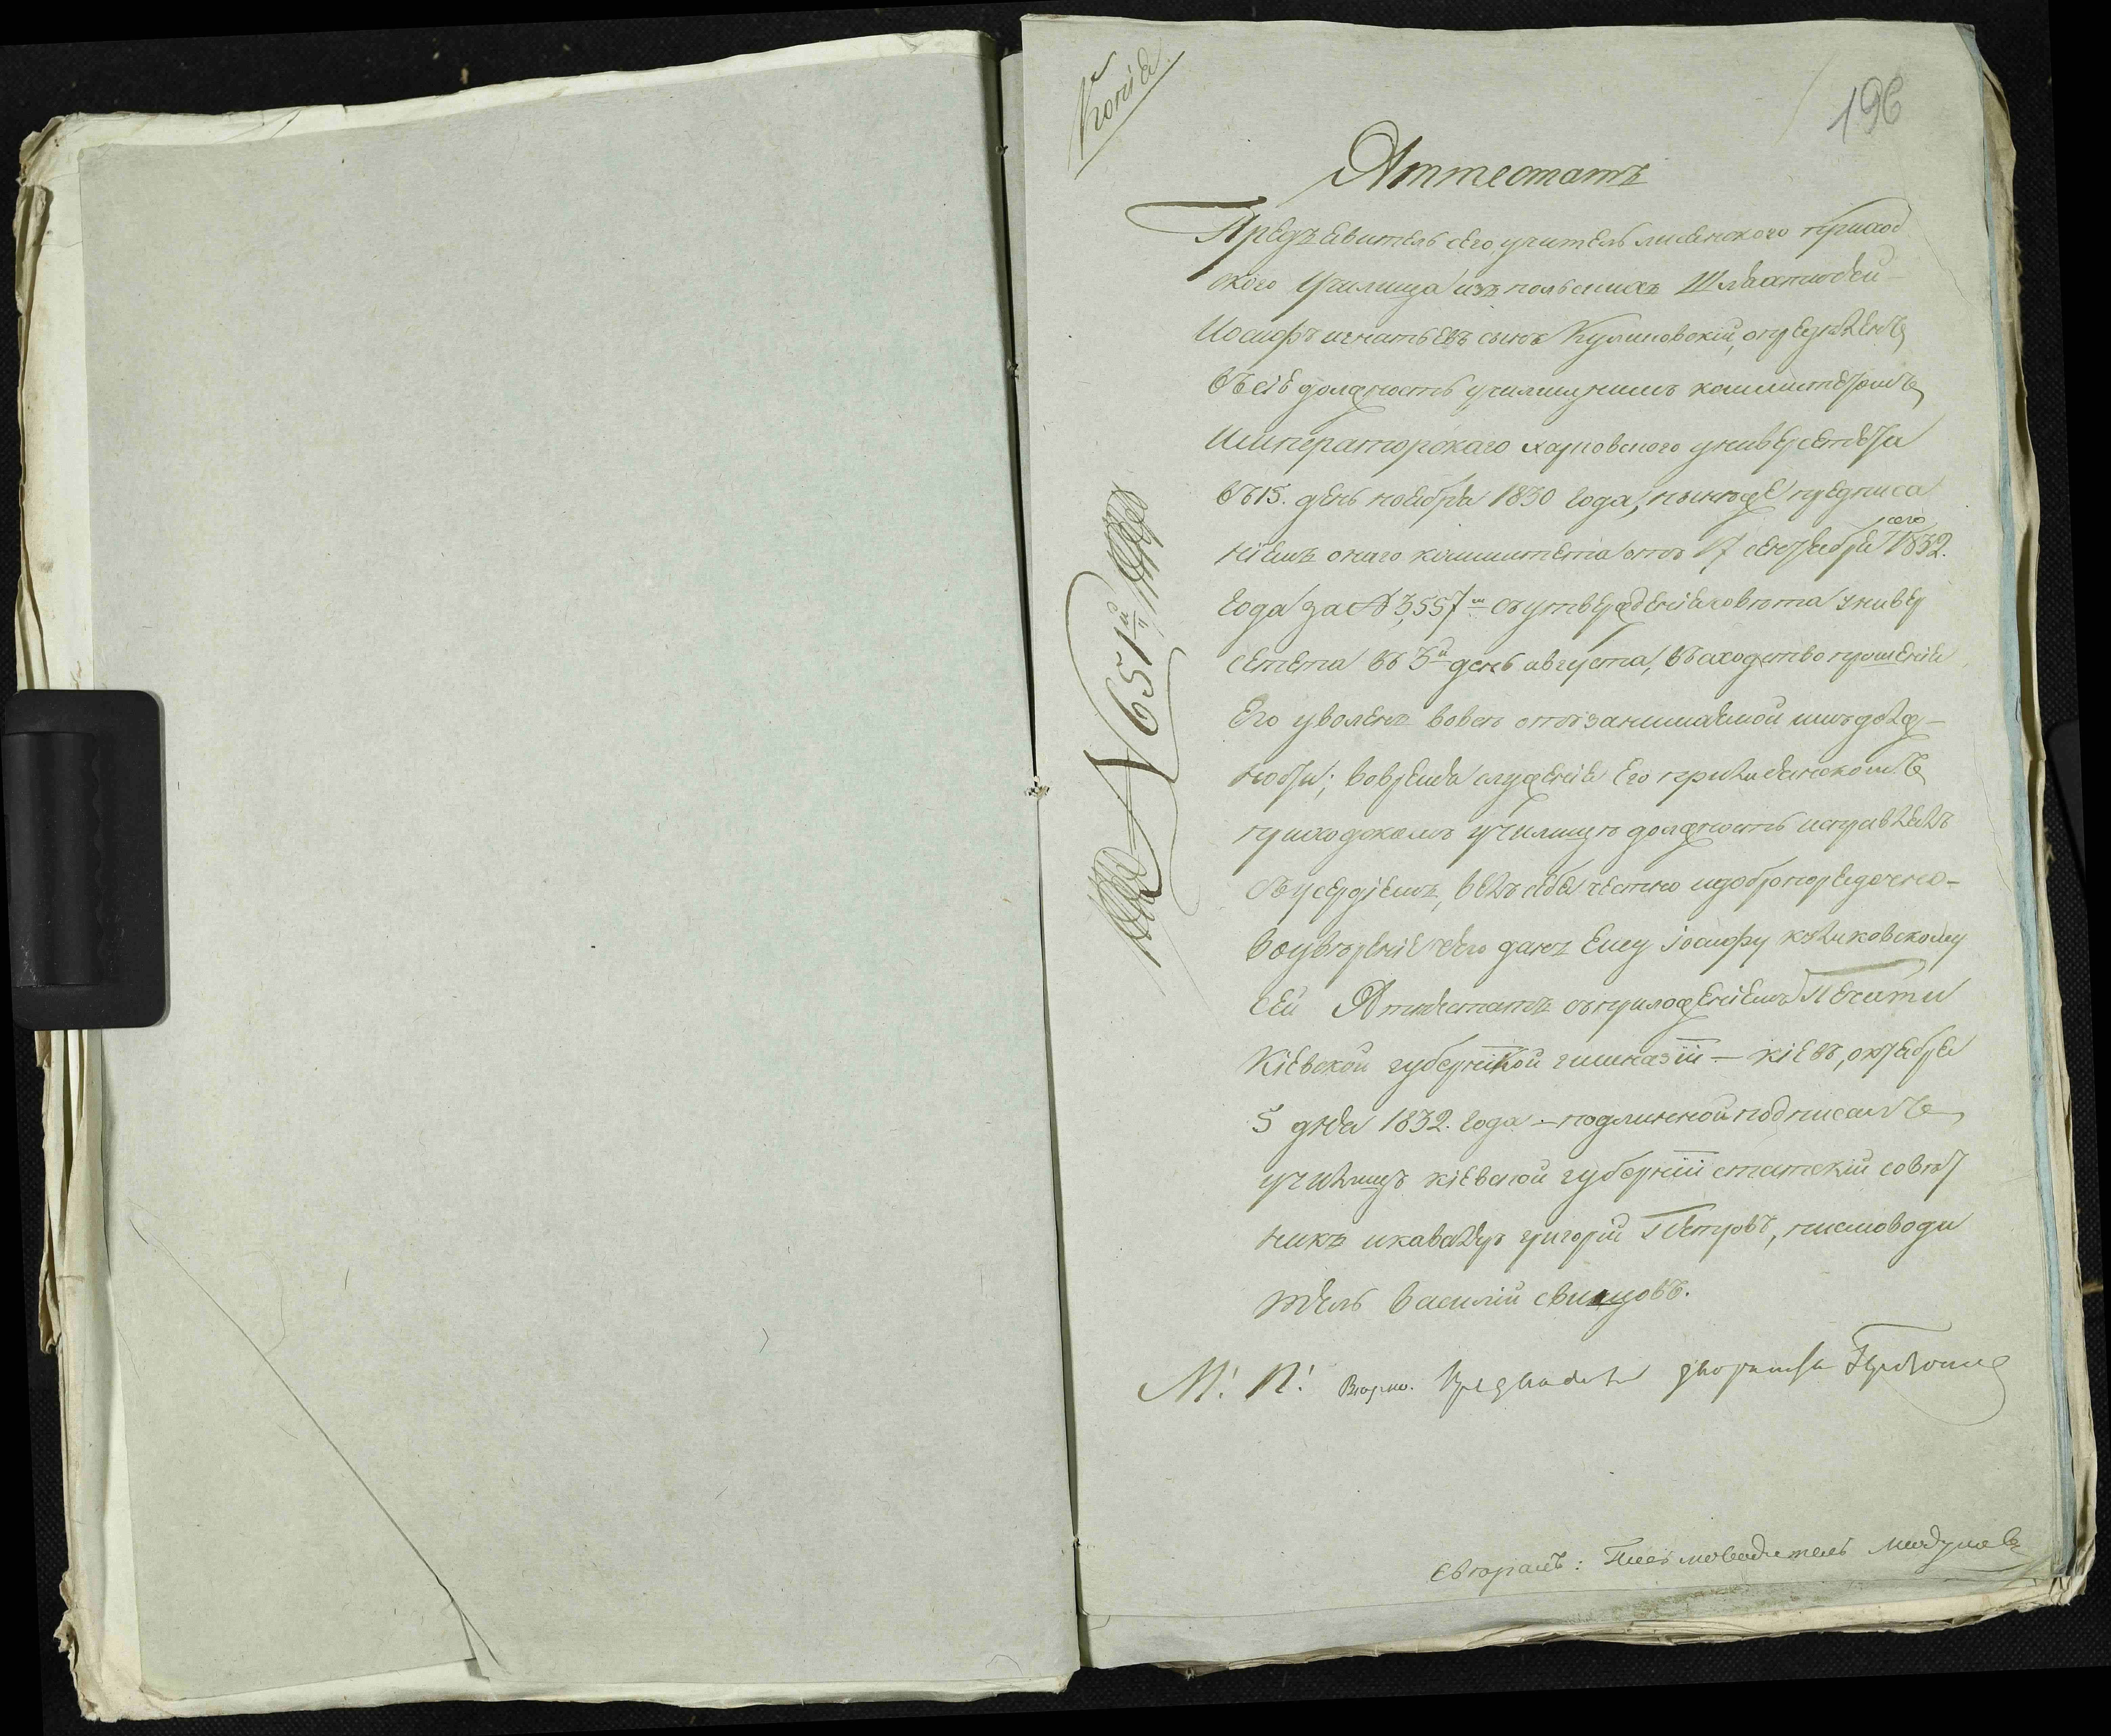 Копія
196
Аттестатъ
Предъявитель сего учитель лисянского приход
ского Училища изъ польскихъ Шляхтичей
Иосифъ игнатьевъ сынъ Куликовский, опредѣленъ
въ сіе должность училищнымъ комитетомъ
Императорскаго харковского университета
въ 15. день ноября 1830 года, нынѣже предписа
ніемъ онаго комитета отъ 17 сентября сего 1832.
года за № 3,557 съ утвержденія совѣта универ
ситета въ 3й день августа, въсходство прошенія
Его уволенъ вовсе отъ занимаемой имъ долж-
ности; вовремя служенія Его при лисянскомъ
приходскомъ училищѣ должность исправлялъ
съ усердіемъ, велъ себя честно и добропорядочно-
воувѣреніе чего данъ Ему іосифу куликовскому
сей Аттестатъ съ приложеніемъ Печати
Кіевской губернской гимназіи — кіевъ, октября
5 дня 1832. года — подлинной подписалъ
училищъ кіевской губерніи статскій совѣт
никъ и кавалеръ григорій Петровъ, писмоводи
тель василій свинцовъ.
№ 651й
М. П. Вѣрно: Предводитель дворянства
Свѣрялъ: Письмоводитель